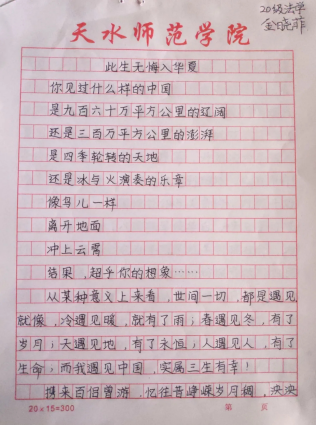 20级法学
金晓菲
天水师范学院
此生无悔入华夏
你见过什么样的中国
是九百六十万平方公里的辽阔
还是三百万平方公里的澎湃
是四季轮转的天地
还是冰与火演奏的乐章
像鸟儿一样
离开地面
冲上云霄
结果，超乎你的想象……
从某种意义上来看，世间一切，都是遇见
就像，冷遇见暖，就有了雨；春遇见冬，有了
岁月；天遇见地，有了永恒；人遇见人，有了
生命；而我遇见中国，实属三生有幸！
携来百侣曾游，忆往昔峥嵘岁月稠，泱泱
20×15=300
第 页